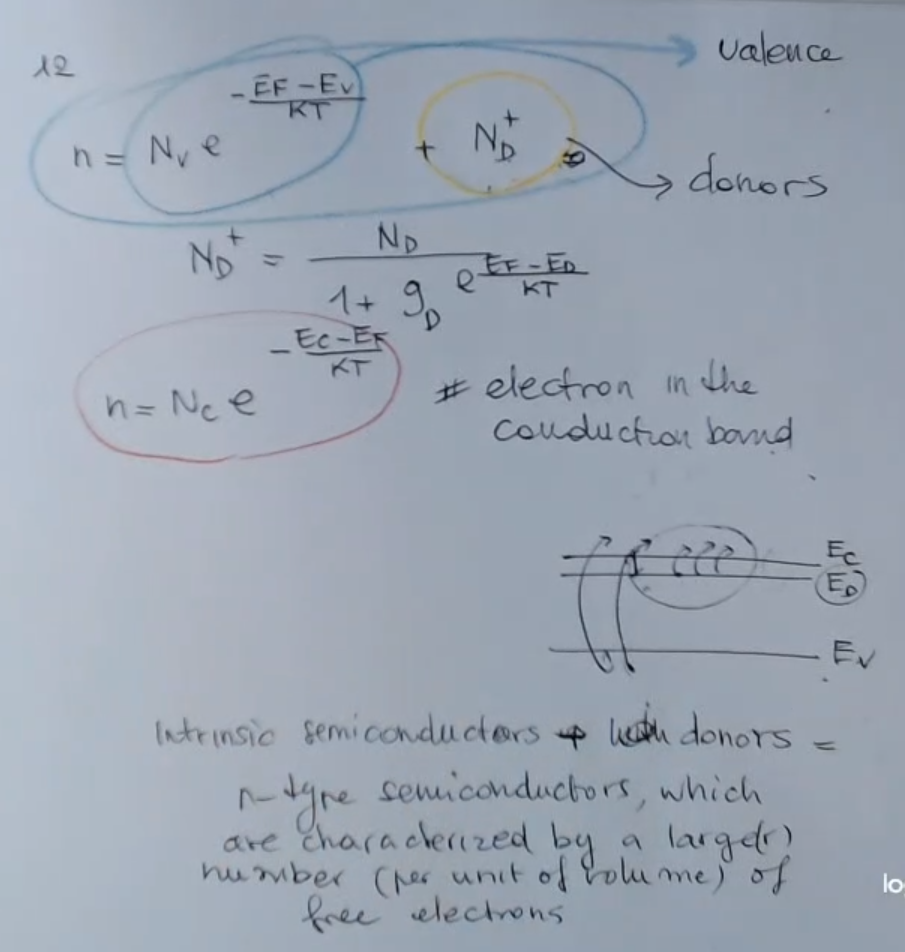 12
valence
n = N_V e^{-\frac{E_F - E_V}{KT}} + N_D^+
donors
N_D^+ = \frac{N_D}{1 + g_D e^{\frac{E_F - E_D}{KT}}}
n = N_C e^{-\frac{E_C - E_F}{KT}}
# electron in the
conduction band
E_C
E_D
E_V
Intrinsic semiconductors + with donors =
n-type semiconductors, which
are characterized by a large(r)
number (per unit of volume) of
free electrons
lo